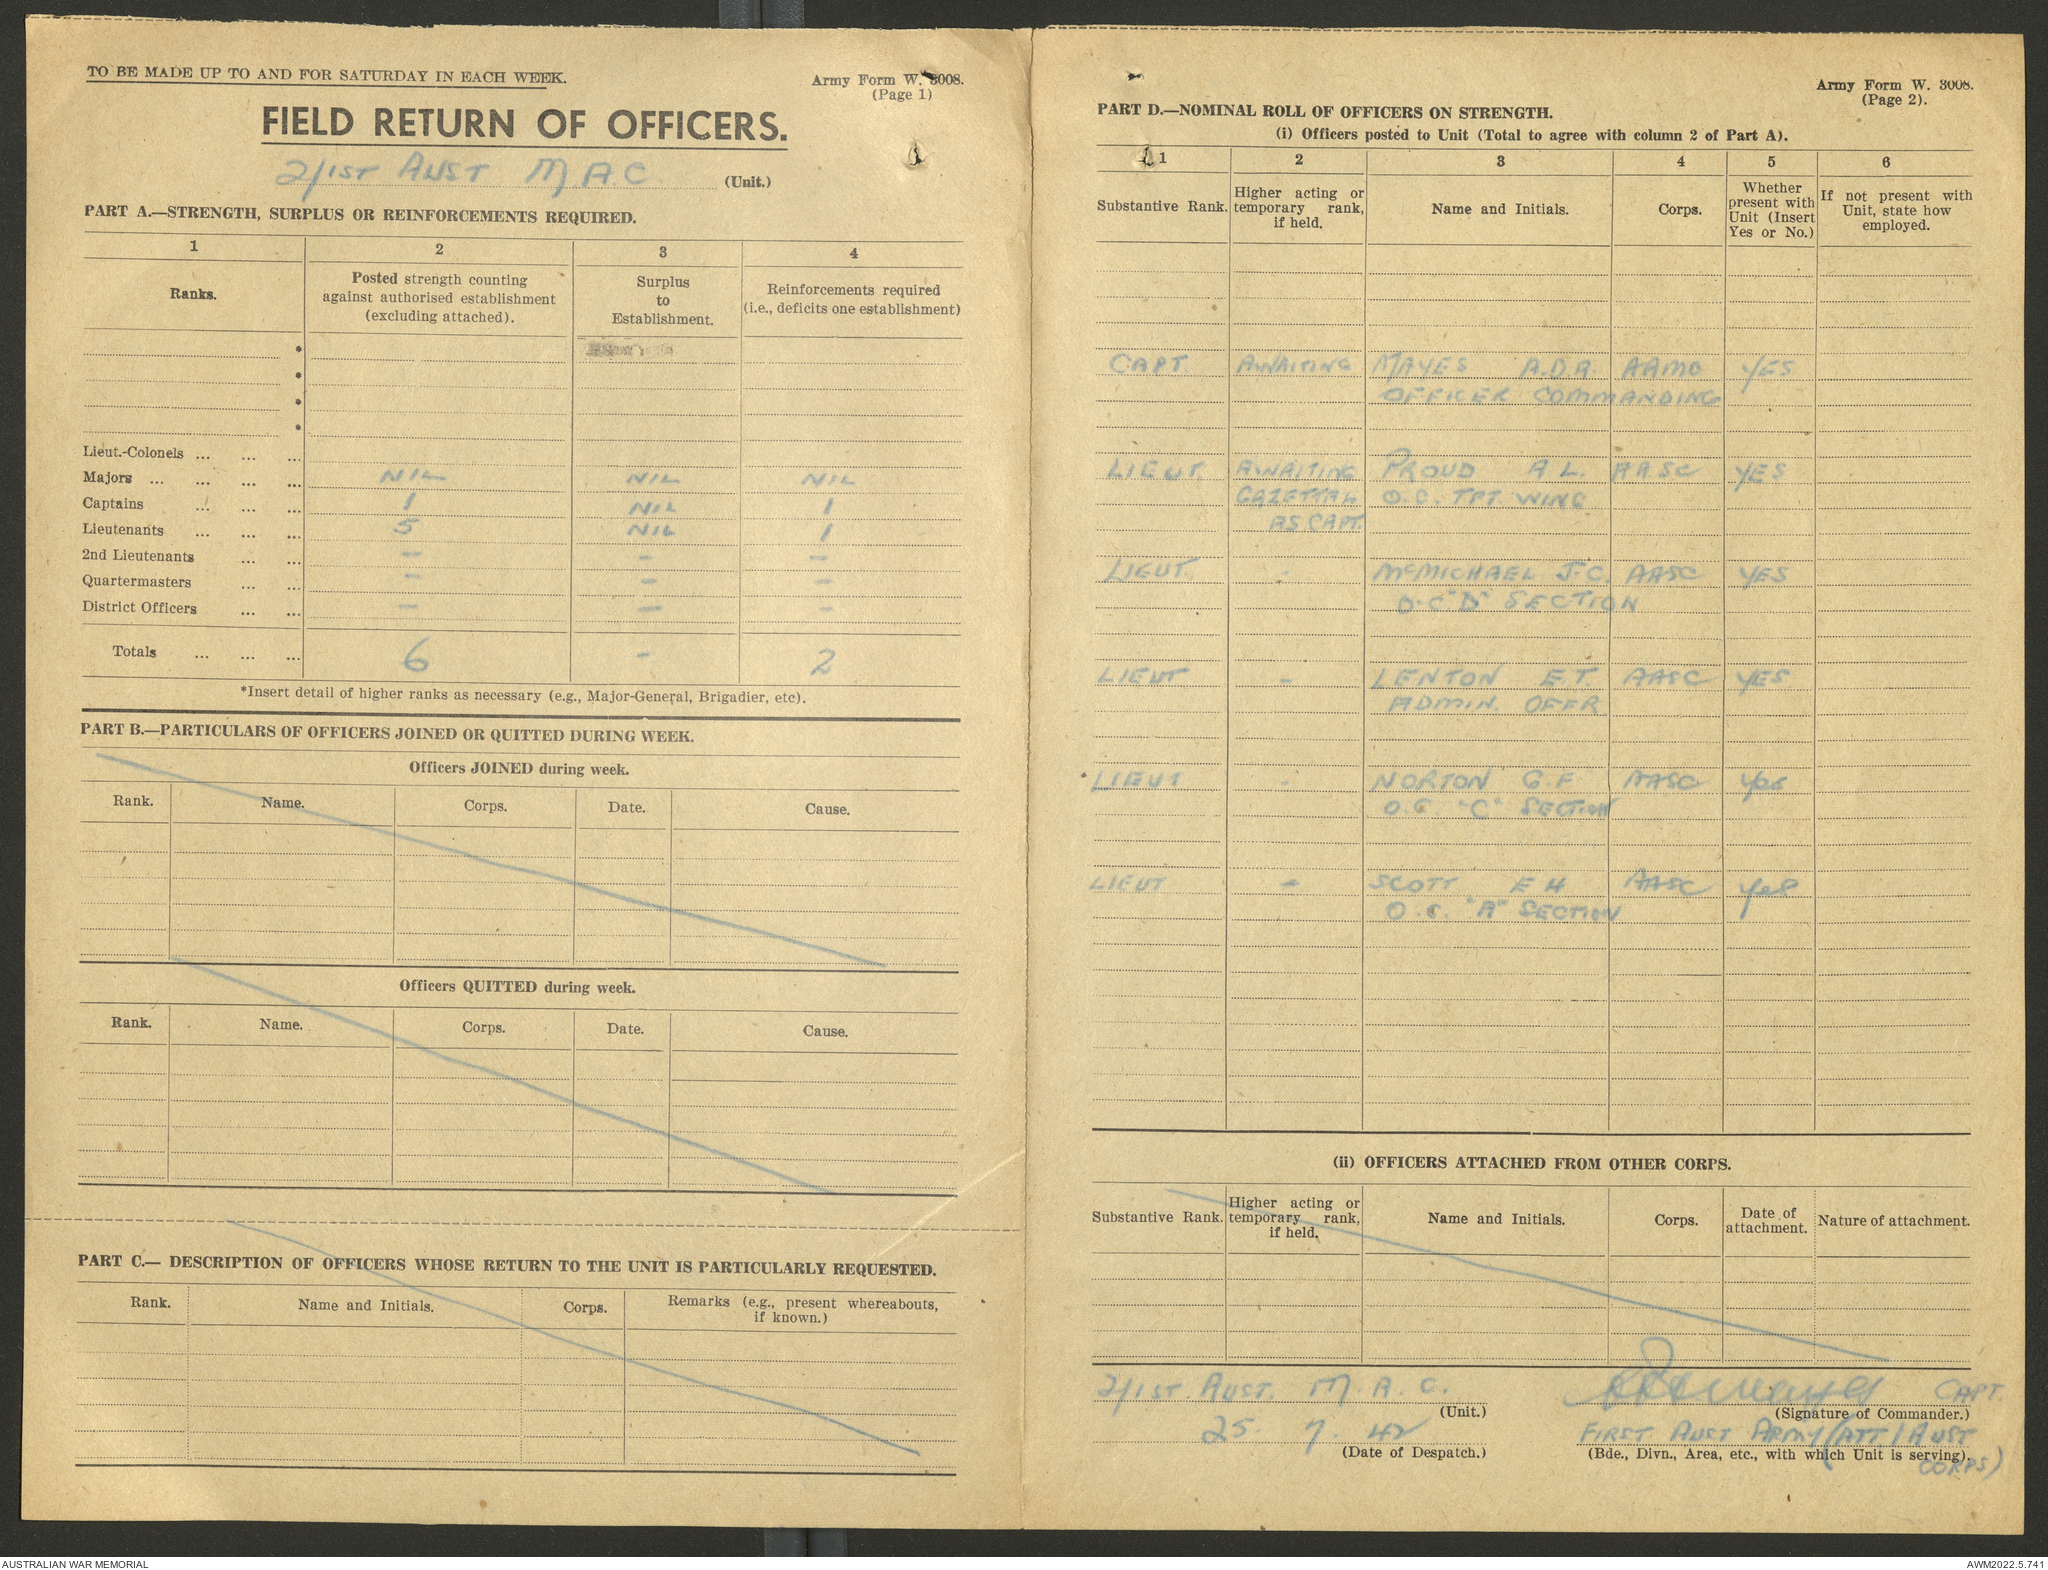 TO BE MADE UP TO AND FOR SATURDAY IN EACH WEEK.
Army Form W. 3008.
(Page 1)
FIELD RETURN OF OFFICERS.
2/1ST AUST M.A.C. (Unit.)
PART A.—STRENGTH, SURPLUS OR REINFORCEMENTS REQUIRED.
1 2 3 4
Ranks. Posted strength counting against authorised establishment (excluding attached). Surplus to Establishment. Reinforcements required (i.e., deficits one establishment)
*
*
*
*
Lieut.-Colonels ... ... ...
Majors ... ... ... ... NIL NIL NIL
Captains ... ... ... 1 NIL 1
Lieutenants ... ... ... 5 NIL 1
2nd Lieutenants ... ... — - —
Quartermasters ... ... — — —
District Officers ... ... — — -
Totals ... ... ... 6 - 2
*Insert detail of higher ranks as necessary (e.g., Major-General, Brigadier, etc).
PART B.—PARTICULARS OF OFFICERS JOINED OR QUITTED DURING WEEK.
Officers JOINED during week.
Rank. Name. Corps. Date. Cause.
Officers QUITTED during week.
Rank. Name. Corps. Date. Cause.
PART C.— DESCRIPTION OF OFFICERS WHOSE RETURN TO THE UNIT IS PARTICULARLY REQUESTED.
Rank. Name and Initials. Corps. Remarks (e.g., present whereabouts, if known.)
Army Form W. 3008.
(Page 2).
PART D.—NOMINAL ROLL OF OFFICERS ON STRENGTH.
(i) Officers posted to Unit (Total to agree with column 2 of Part A).
1 2 3 4 5 6
Substantive Rank. Higher acting or temporary rank, if held. Name and Initials. Corps. Whether present with Unit (Insert Yes or No.) If not present with Unit, state how employed.
CAPT. AWAITING MAYES A.D.R. AAMC YES
OFFICER COMMANDING
LIEUT. AWAITING PROUD A L. AASC YES
GAZETTAL O.C. TPT WING
AS CAPT.
LIEUT. - McMICHAEL J.C. AASC YES
O.C "D" SECTION
LIEUT - LENTON E.T. AASC YES
ADMIN. OFFR.
LIEUT - NORTON G.F AASC Yes
O.C. "C" SECTION
LIEUT - SCOTT E H AASC Yes
O.C. "A" SECTION
(ii) OFFICERS ATTACHED FROM OTHER CORPS.
Substantive Rank. Higher acting or temporary rank, if held. Name and Initials. Corps. Date of attachment. Nature of attachment.
2/1ST. AUST. M.A.C.
(Unit.)
CAPT.
(Signature of Commander.)
25. 7. 42
(Date of Despatch.)
FIRST AUST ARMY (ATT 1 AUST
(Bde., Divn., Area, etc., with which Unit is serving).
CORPS)
AUSTRALIAN WAR MEMORIAL
AWM2022.5.741